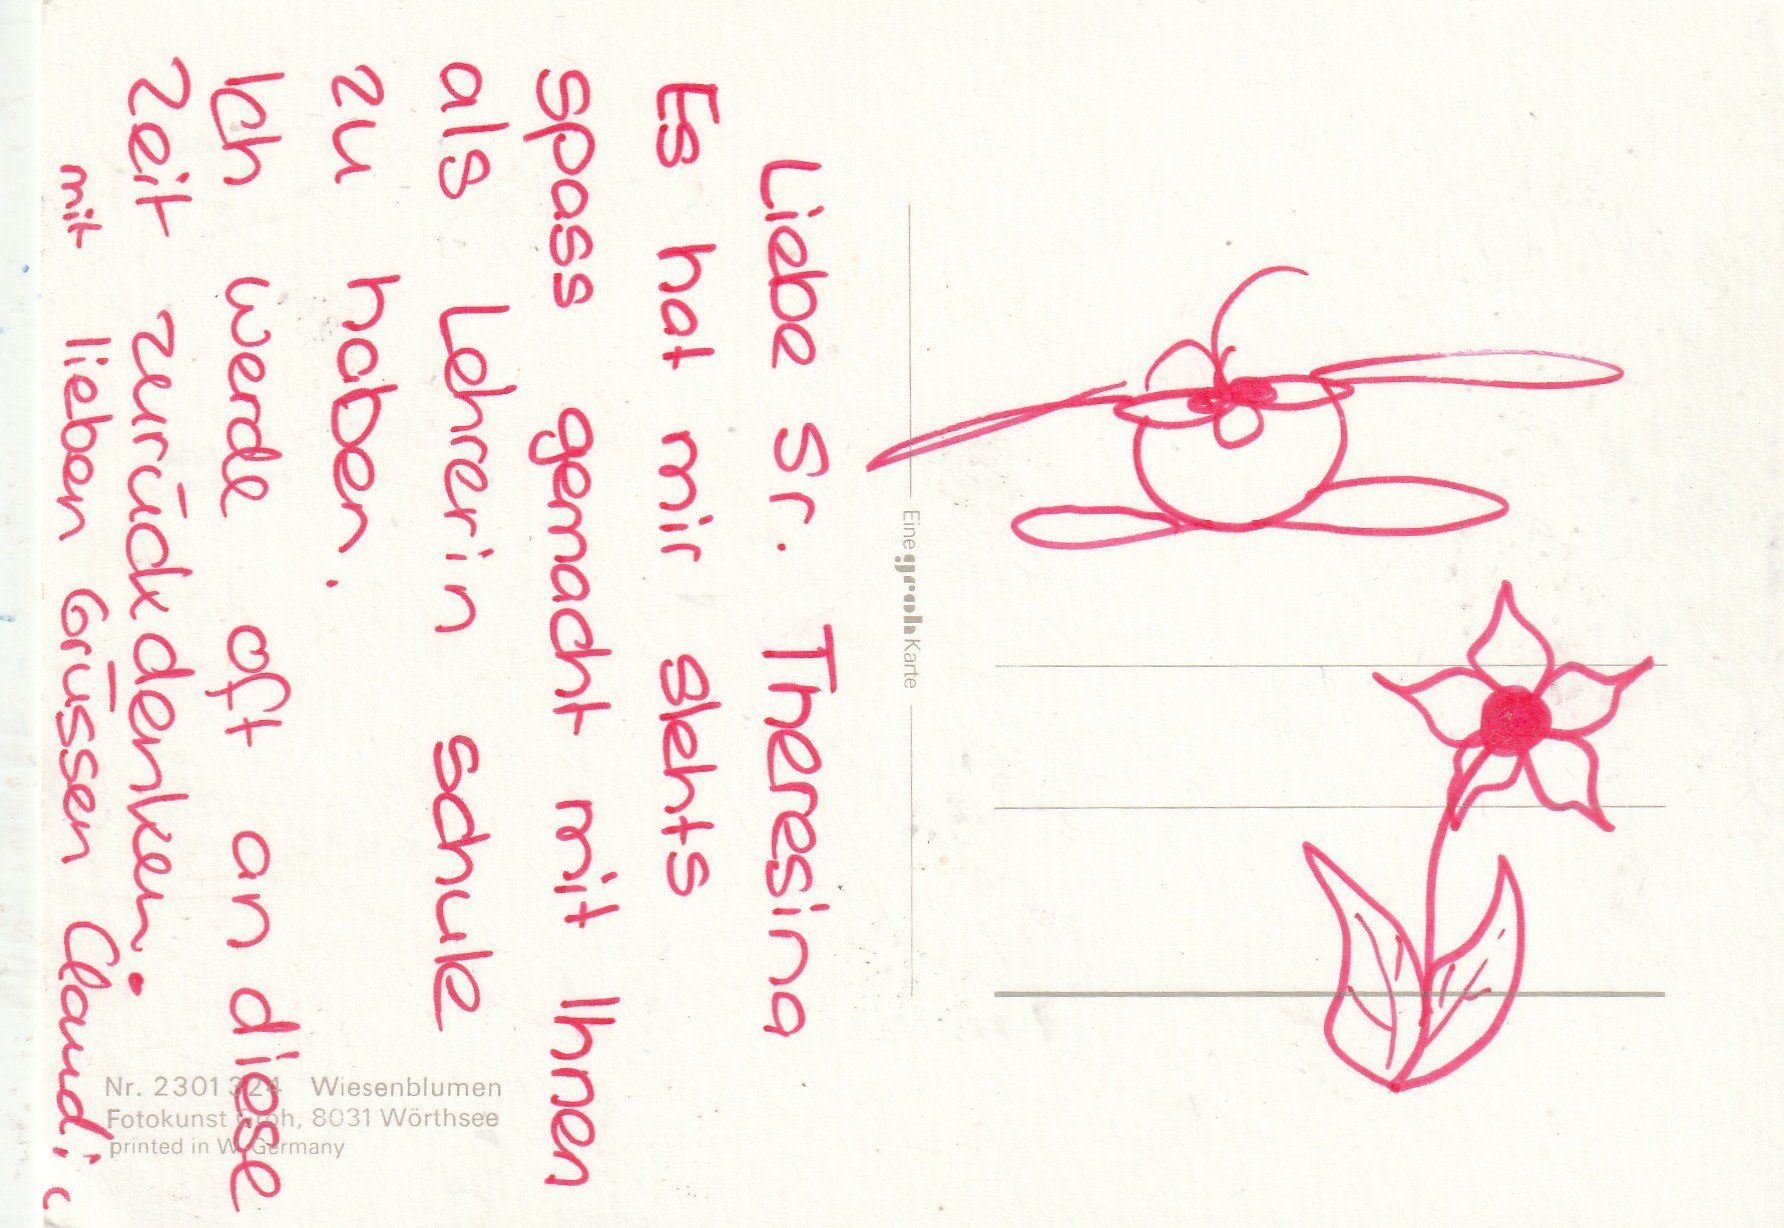 Liebe Sr. Theresina
Es hat mir stehts
spass gemacht mit Ihnen
als Lehrerin schule
zu haben.
Ich werde oft an diese
Zeit zurückdenken.
mit lieben Grüssen
Eine groh Karte
Nr. 2301324 Wiesenblumen
Fotokunst Groh, 8031 Wörthsee
printed in W. Germany